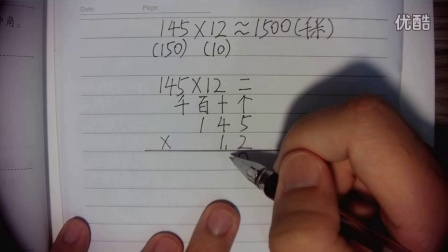 Date: Page:
优酷
145×12≈1500(千米)
(150) (10)
145×12 =
千百十个
1 4 5
× 1 2